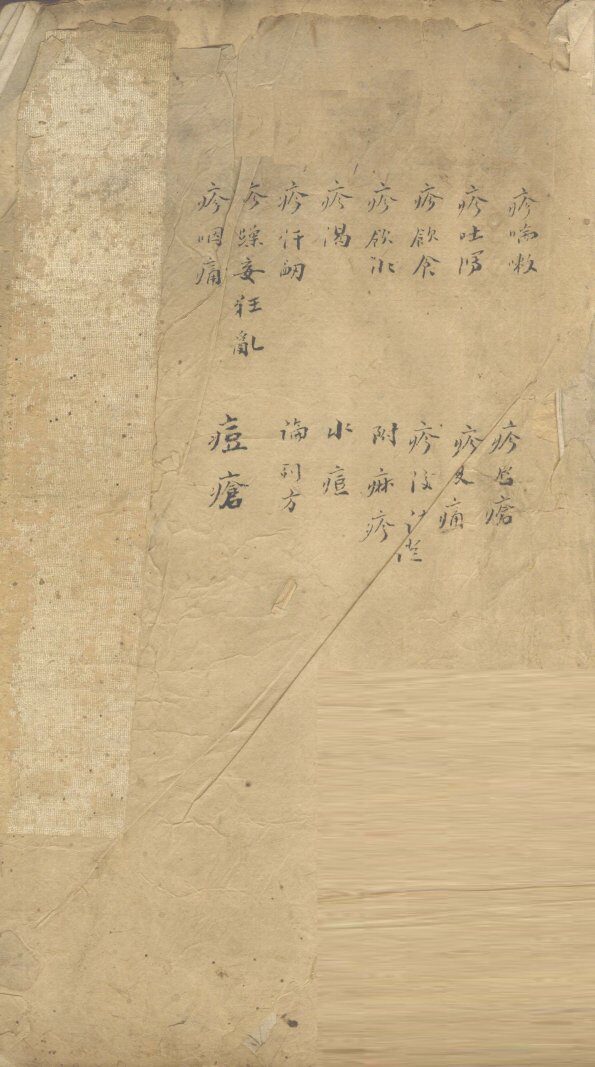 疹喘嗽
疹吐瀉
疹飲食
疹飲水
疹渴
疹汗衄
疹躁妄狂亂
疹咽痛
疹唇瘡
疹痛
疹後
附痳疹
水痘
論列方
痘瘡